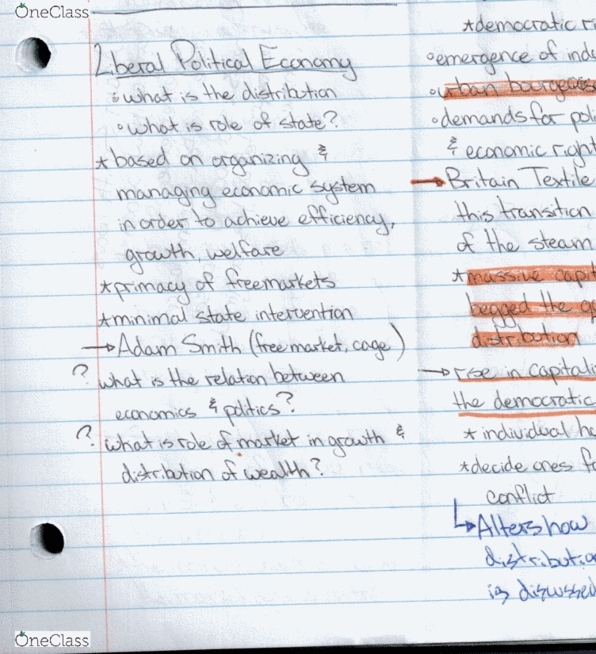 OneClass
Liberal Political Economy
◦what is the distribution
◦what is role of state?
*based on organizing &
managing economic system
in order to achieve efficiency,
growth, welfare
*primacy of freemarkets
*minimal state intervention
→Adam Smith (free market, cage)
? what is the relation between
economics & politics?
? what is role of market in growth &
distribution of wealth?
*democratic ri
◦emergence of indu
◦urban bourgeois
◦demands for poli
& economic right
→Britain Textile
this transition
of the steam
*massive capit
begged the q
distribution
→rise in capitali
the democratic
*individual ha
*decide ones fa
conflict
↳Alters how
distributio
is discussed
OneClass